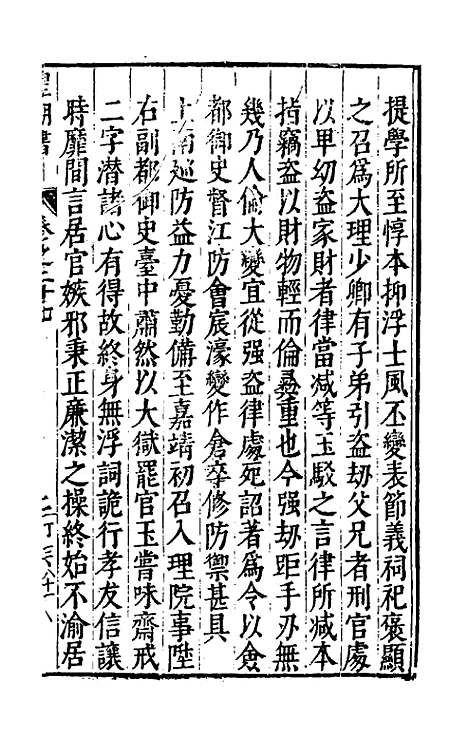 提學所至惇本抑浮士風丕變表節義祠祀褒顯
之召爲大理少卿有子弟引盗刼父兄者刑官處
以卑幼盗家財者律當减等玉駁之言律所减本
指竊盗以財物輕而倫彞重也今强刼距手刃無
幾乃人倫大變宜從强盗律處死詔著爲令以僉
都御史督江防會宸濠變作倉卒修防禦甚具
上南巡防益力憂勤備至嘉靖初召入理院事陞
右副都御史臺中肅然以大獄罷官玉嘗味齋戒
二字潛諸心有得故終身無浮詞詭行孝友信讓
時靡間言居官嫉邪秉正廉潔之操終始不渝居
皇明書
卷之二十四